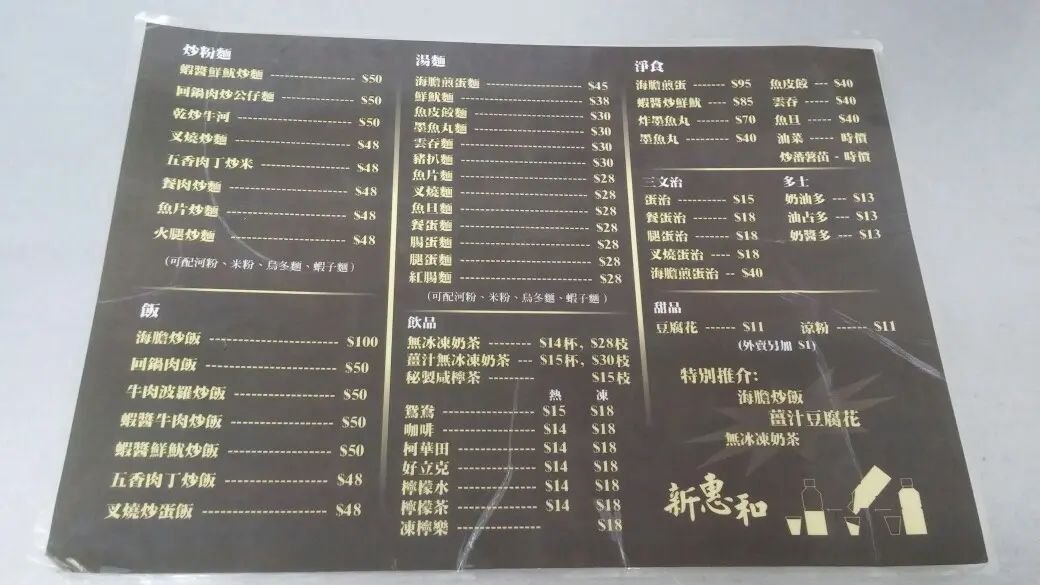 炒粉麵
蝦醬鮮魷炒麵 $50
回鍋肉炒公仔麵 $50
乾炒牛河 $50
叉燒炒麵 $48
五香肉丁炒米 $48
餐肉炒麵 $48
魚片炒麵 $48
火腿炒麵 $48
(可配河粉、米粉、烏冬麵、蝦子麵)
飯
海膽炒飯 $100
回鍋肉飯 $50
牛肉波羅炒飯 $50
蝦醬牛肉炒飯 $50
蝦醬鮮魷炒飯 $50
五香肉丁炒飯 $48
叉燒炒蛋飯 $48
湯麵
海膽煎蛋麵 $45
鮮魷麵 $38
魚皮餃麵 $30
墨魚丸麵 $30
雲吞麵 $30
豬扒麵 $30
魚片麵 $28
叉燒麵 $28
魚旦麵 $28
餐蛋麵 $28
腸蛋麵 $28
腿蛋麵 $28
紅腸麵 $28
(可配河粉、米粉、烏冬麵、蝦子麵)
飲品
無冰凍奶茶 $14杯, $28枝
薑汁無冰凍奶茶 $15杯, $30枝
秘製咸檸茶 $15枝
熱 凍
鴛鴦 $15 $18
咖啡 $14 $18
柯華田 $14 $18
好立克 $14 $18
檸檬水 $14 $18
檸檬茶 $14 $18
凍檸樂 $18
淨食
海膽煎蛋 $95 魚皮餃 $40
蝦醬炒鮮魷 $85 雲吞 $40
炸墨魚丸 $70 魚旦 $40
墨魚丸 $40 油菜 時價
炒蕃薯苗 - 時價
三文治 多士
蛋治 $15 奶油多 $13
餐蛋治 $18 油占多 $13
腿蛋治 $18 奶醬多 $13
叉燒蛋治 $18
海膽煎蛋治 $40
甜品
豆腐花 $11 涼粉 $11
(外賣另加 $1)
特別推介:
海膽炒飯
薑汁豆腐花
無冰凍奶茶
新惠和